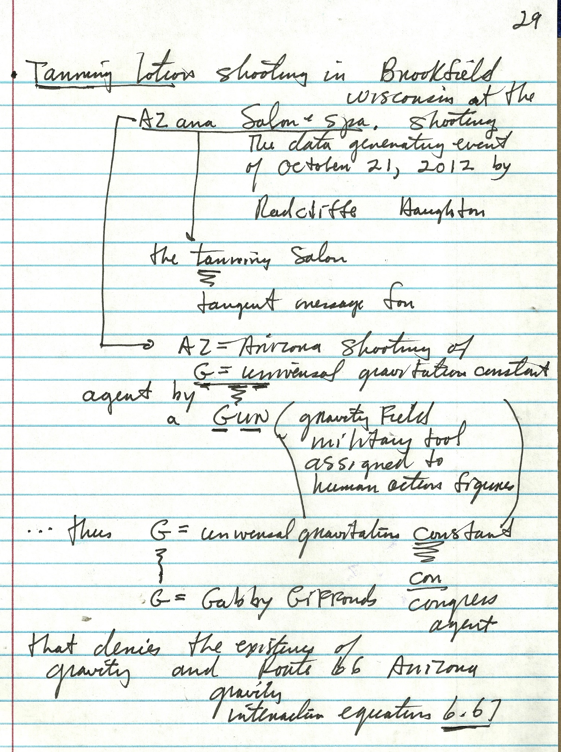 29
• Tanning lotion shooting in Brookfield
Wisconsin at the
AZ ana Salon + spa. shooting
The data generating event
of October 21, 2012 by
Radcliffe Haughton
the tanning Salon
tangent message for
AZ = Arizona shooting of
G = universal gravitation constant
agent by
a GUN (gravity Field
military tool
assigned to
human action figures)
... thus G = universal gravitation constant
con
G = Gabby Giffords congress
agent
that denies the existence of
gravity and Route 66 Arizona
gravity
interaction equation 6.67